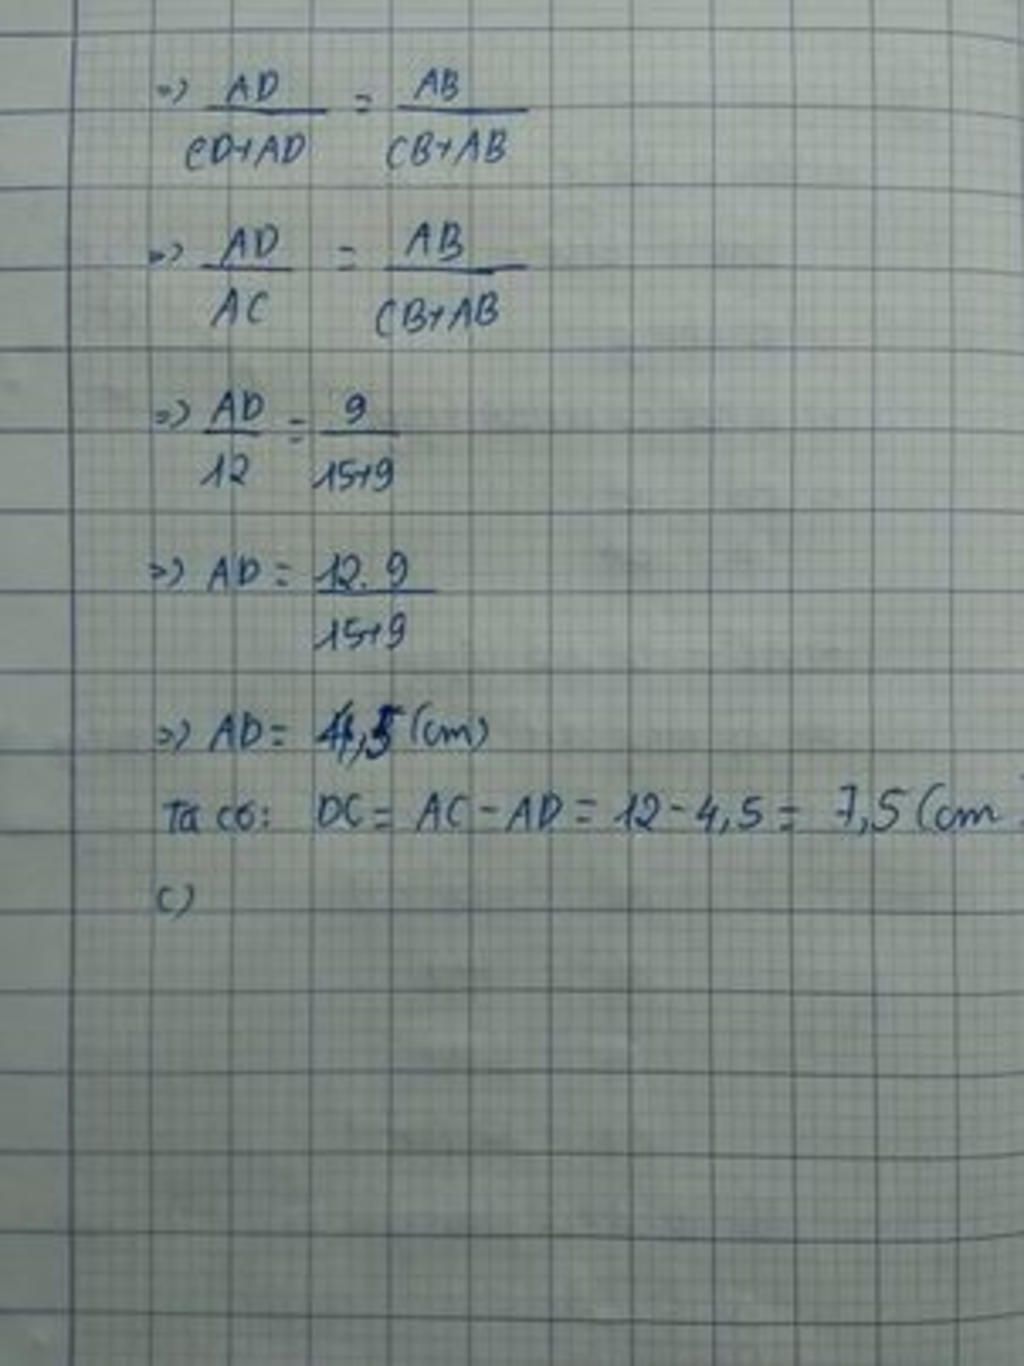 => AD / CD+AD = AB / CB+AB
=> AD / AC = AB / CB+AB
=> AD / 12 = 9 / 15+9
=> AD = 12.9 / 15+9
=> AD = 4,5 (cm)
Ta có: DC = AC - AD = 12 - 4,5 = 7,5 (cm)
c)